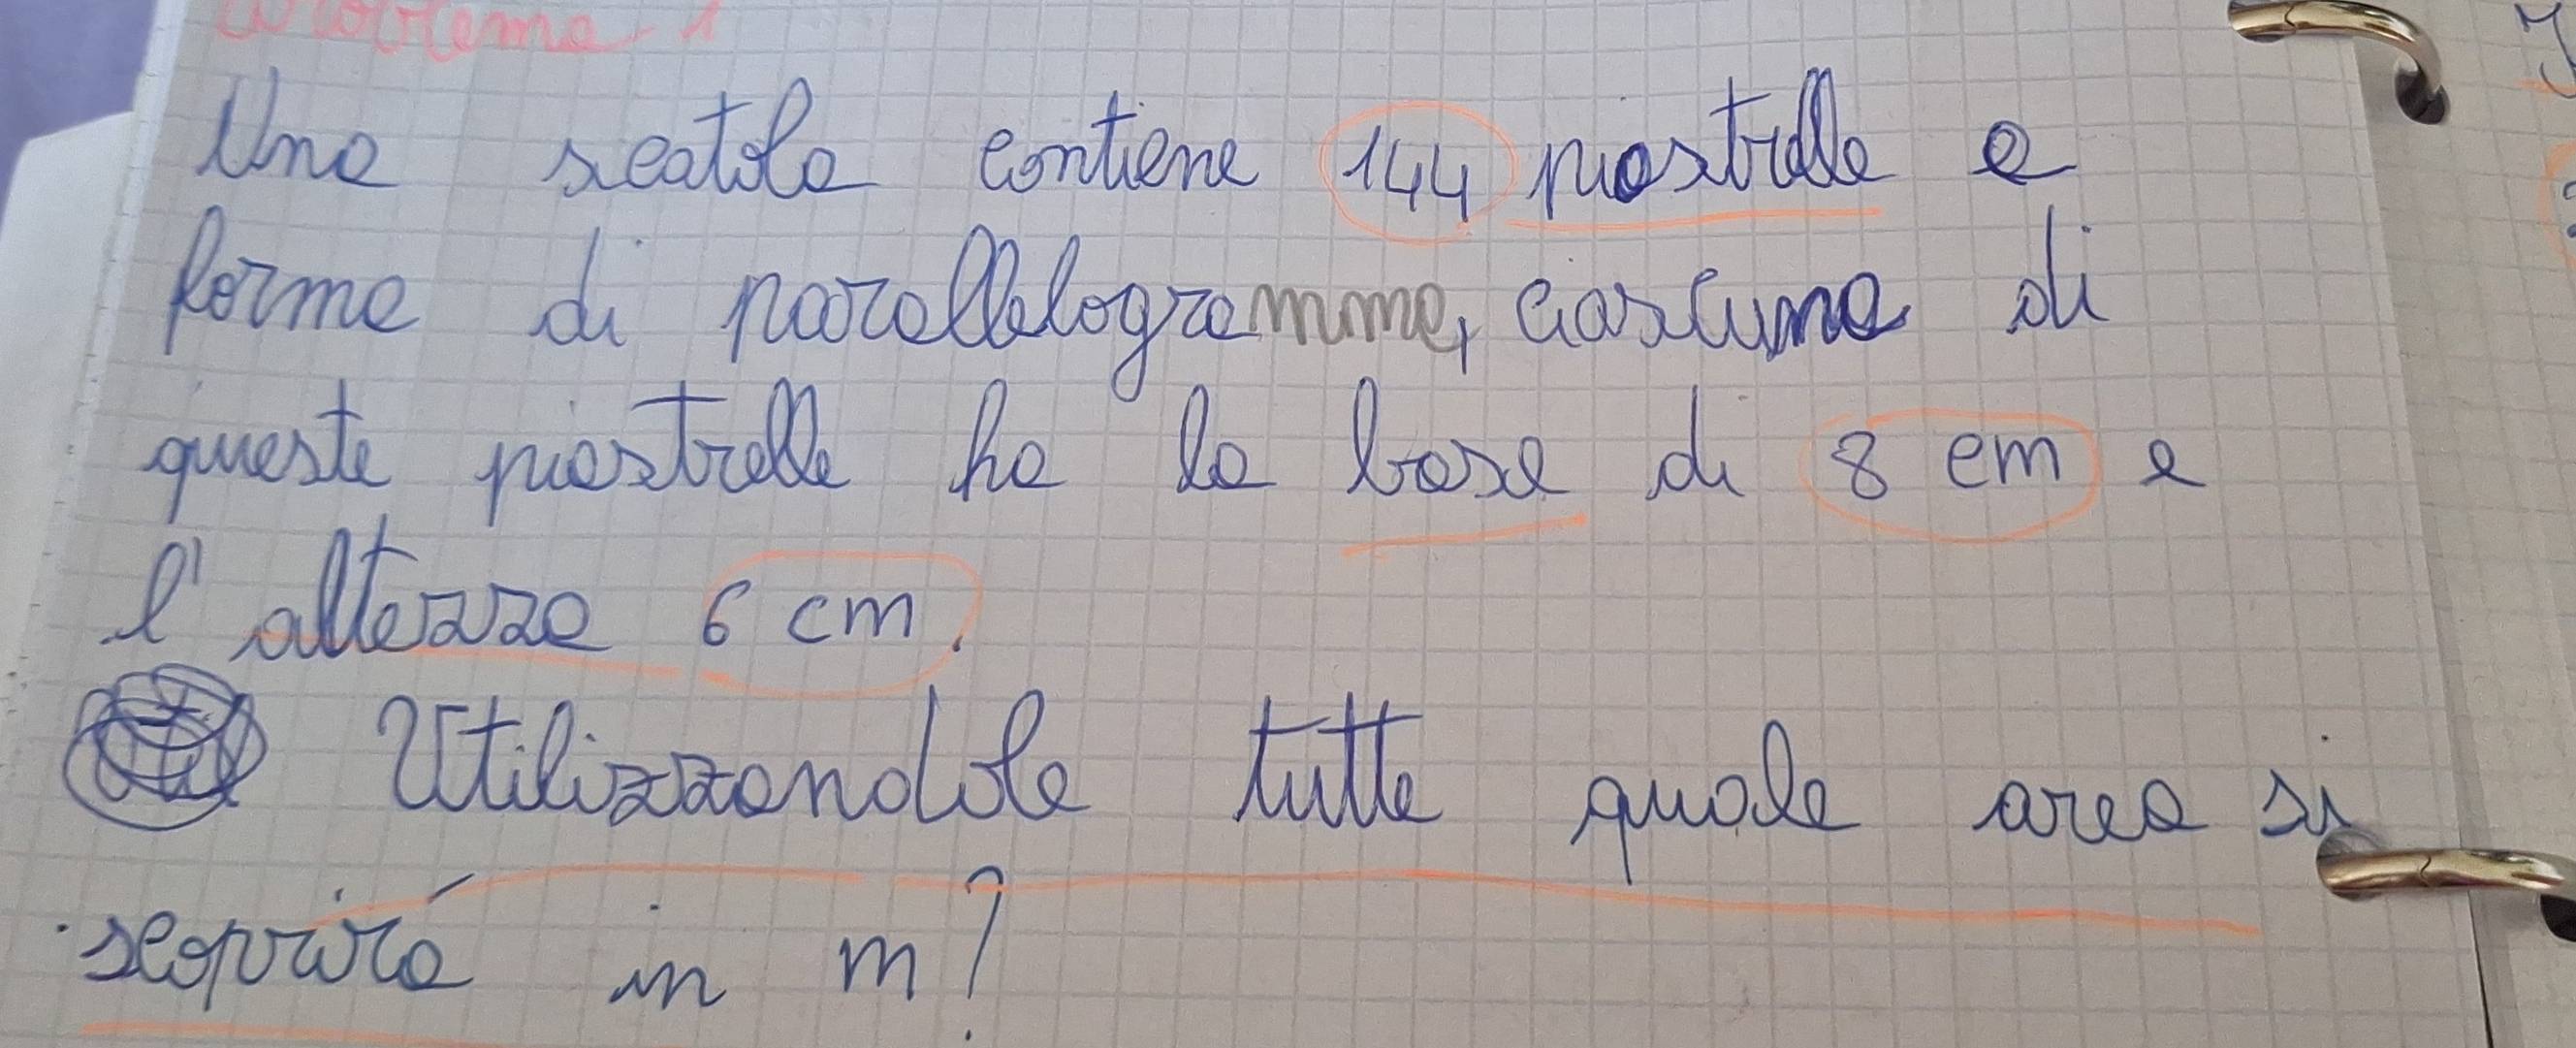 Problema 1
Una scatola contiene 144 piastrelle a
forma di parallelogramma, ciascuna di
queste piastrelle ha la base di 8 cm e
l'altezza 6 cm.
Utilizzandole tutte quale area si
scoprirá in m?